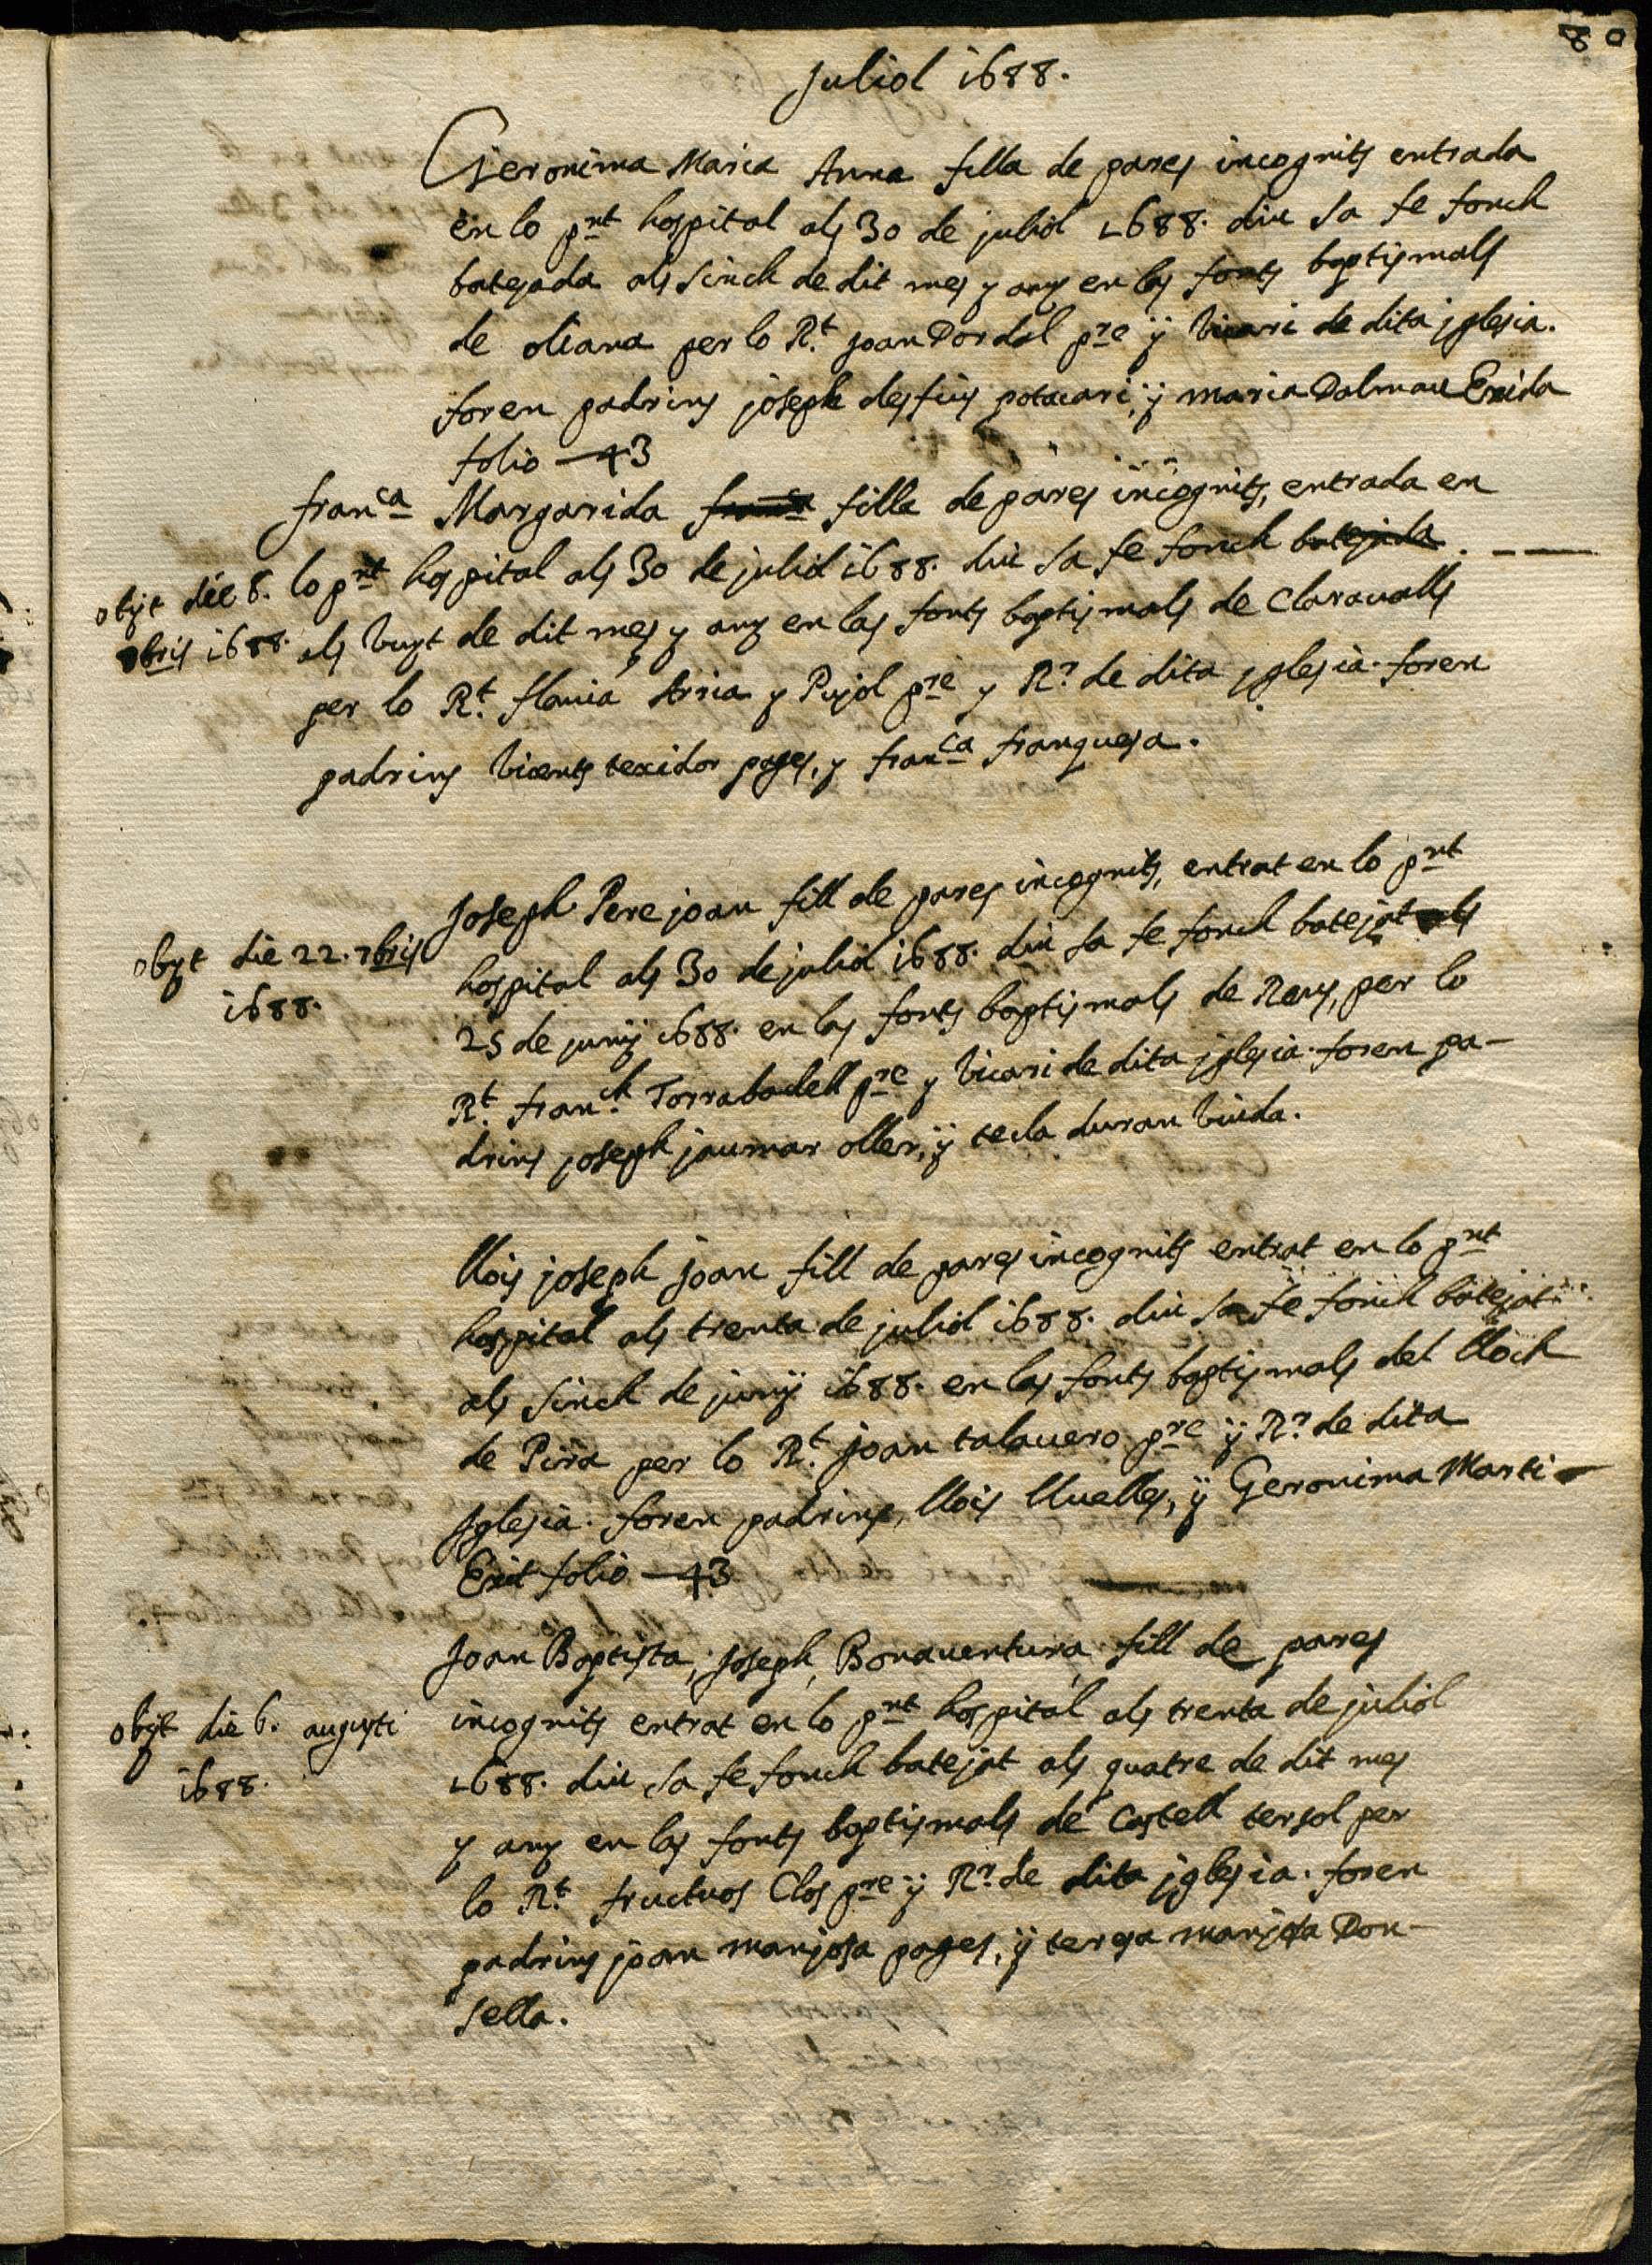 80
Juliol 1688.
Geronima Maria Anna filla de pares incognits entrada
en lo pnt hospital als 30 de juliol 1688. diu sa fe fonch
batejada als sinch de dit mes y any en las fonts baptismals
de oliana per lo Rt. joan Dordal pre ÿ vicari de dita jglesia.
foren padrins joseph desfius potecari, ÿ maria Dalmau Exida
folio 43
franca Margarida franca filla de pares incognits, entrada en
lo pnt hospital als 30 de juliol 1688. diu sa fe fonch batejada.
obijt die 8.
als vuyt de dit mes y any en las fonts baptismals de Claravalls
8bris 1688.
per lo Rt. flavia Arria y Pujol pre y Rr. de dita jglesia. foren
padrins vicents texidor pages, y franca franquesa.
Joseph Pere joan fill de pares incognits, entrat en lo pnt
obijt die 22. 7bris
1688.
hospital als 30 de juliol 1688. diu sa fe fonch batejat als
25 de junÿ 1688. en las fonts baptismals de Reus, per lo
Rt. franch. Torrabadell pre y vicari de dita jglesia. foren pa-
drins joseph jaumar oller, ÿ tecla duran viuda.
llois joseph joan fill de pares incognits entrat en lo pnt
hospital als trenta de juliol 1688. diu sa fe fonch batejat
als sinch de junÿ 1688. en las fonts baptismals del lloch
de Pira per lo Rt. joan talavero pre ÿ Rr. de dita
Jglesia. foren padrins, llois lluelles, ÿ Geronima Marti
Exit folio 43
Joan Baptista, Joseph, Bonaventura fill de pares
obijt die 6. augusti
1688.
incognits entrat en lo pnt hospital als trenta de juliol
1688. diu sa fe fonch batejat als quatre de dit mes
y any en las fonts baptismals de Castell tersol per
lo Rt. fructuos Clos pre ÿ Rr. de dita jglesia. foren
padrins joan manjosa pages, ÿ teresa manjosa Don-
sella.